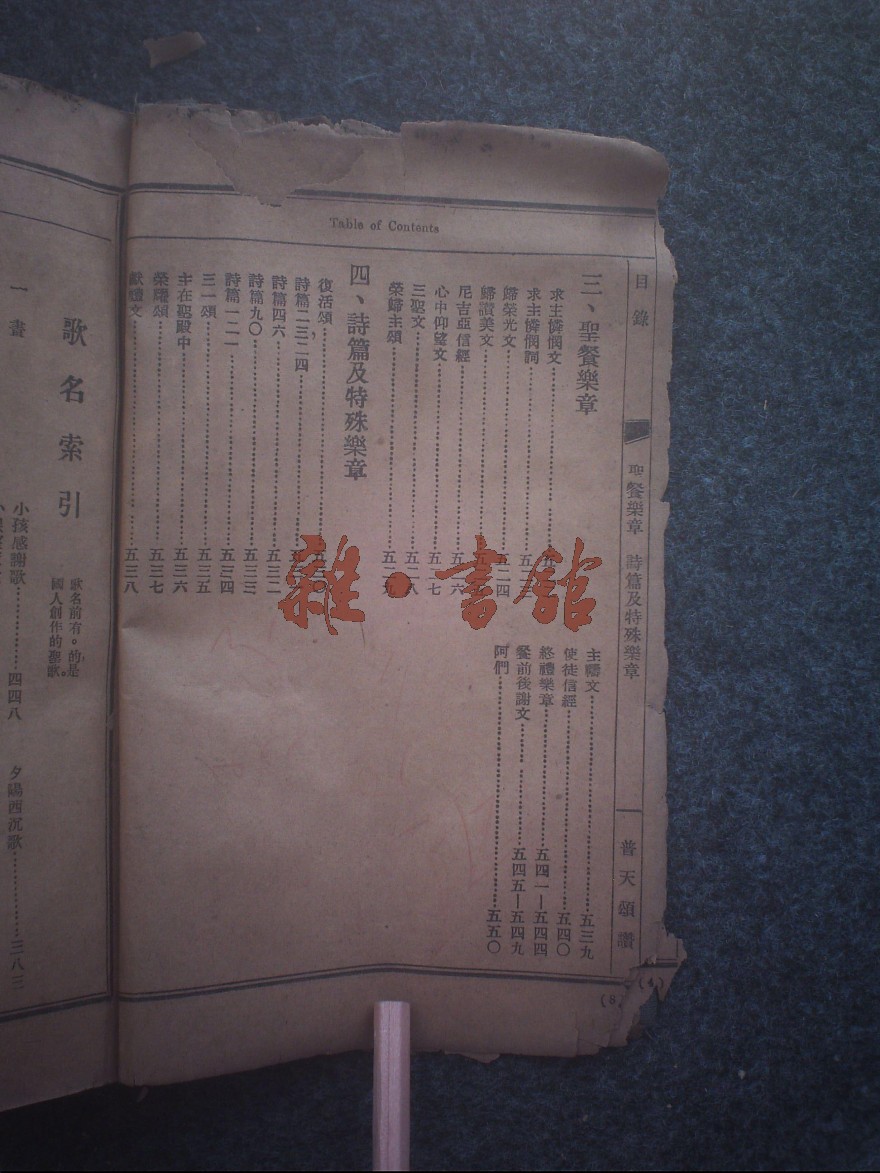 Table of Contents
目錄
聖餐樂章 詩篇及特殊樂章
普天頌讚
三、聖餐樂章
求主憐憫文
求主憐憫詞
歸榮光文 五二四
歸讚美文
尼吉亞信經
心中仰望文 五二七
三聖文
榮歸主頌
四、詩篇及特殊樂章
復活頌
詩篇二三,二四
詩篇四六 五三二
詩篇九〇 五三三
詩篇一二一 五三四
三一頌 五三五
主在聖殿中 五三六
榮耀頌 五三七
獻禮文 五三八
主禱文 五三九
使徒信經 五四〇
終禮樂章 五四一—五四四
餐前後謝文 五四五—五四九
阿們 五五〇
歌名索引
歌名前有。的是
國人創作的聖歌。
一畫
小孩感謝歌 四四八
夕陽西沉歌 三八三
雜·書館